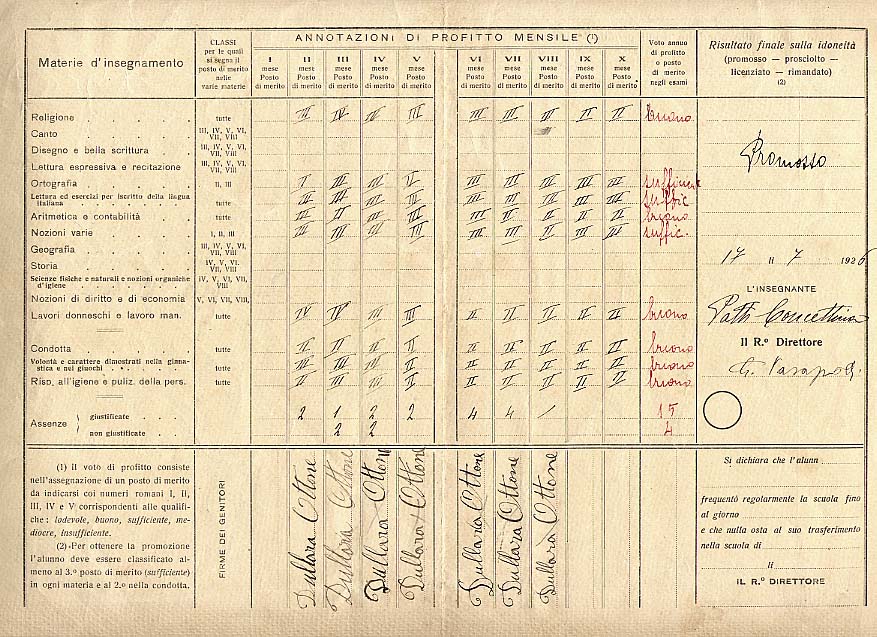 Materie d'insegnamento
CLASSI
per le quali
si segna il
posto di merito
nelle
varie materie
ANNOTAZIONI DI PROFITTO MENSILE (1)
I mese Posto di merito
II mese Posto di merito
III mese Posto di merito
IV mese Posto di merito
V mese Posto di merito
VI mese Posto di merito
VII mese Posto di merito
VIII mese Posto di merito
IX mese Posto di merito
X mese Posto di merito
Voto annuo
di profitto
o posto
di merito
negli esami
Risultato finale sulla idoneità
(promosso — prosciolto —
licenziato — rimandato)
(2)
Religione tutte III IV IV III II II II II II buono
Canto III, IV, V, VI, VII, VIII
Disegno e bella scrittura III, IV, V, VI, VII, VIII
Lettura espressiva e recitazione III, IV, V, VI, VII, VIII
Ortografia II, III
Lettura ed esercizi per iscritto della lingua italiana tutte suffic
Aritmetica e contabilità tutte
Nozioni varie I, II, III suffic.
Geografia III, IV, V, VI, VII, VIII
Storia IV, V, VI, VII, VIII
Scienze fisiche e naturali e nozioni organiche d'igiene IV, V, VI, VII, VIII
Nozioni di diritto e di economia V, VI, VII, VIII,
Lavori donneschi e lavoro man. tutte IV IV III III II II II II II buono
Condotta tutte II II II II II II II II II buono
Volontà e carattere dimostrati nella ginnastica e nei giuochi tutte buono
Risp. all'igiene e puliz. della pers. tutte buono
Assenze
giustificate 2 1 2 2 4 4 1 15
non giustificate 2 2 4
Promosso
17 li 7 1926
L'INSEGNANTE
Concettina
Il R.º Direttore
(1) Il voto di profitto consiste
nell'assegnazione di un posto di merito
da indicarsi coi numeri romani I, II,
III, IV e V corrispondenti alle qualifi-
che: lodevole, buono, sufficiente, me-
diocre, insufficiente.
(2) Per ottenere la promozione
l'alunno deve essere classificato al-
meno al 3.º posto di merito (sufficiente)
in ogni materia e al 2.º nella condotta.
FIRME DEI GENITORI
Dullara Ottone
Dullara Ottone
Dullara Ottone
Dullara Ottone
Dullara Ottone
Dullara Ottone
Dullara Ottone
Si dichiara che l'alunn
frequentò regolarmente la scuola fino
al giorno
e che nulla osta al suo trasferimento
nella scuola di
li
IL R.º DIRETTORE